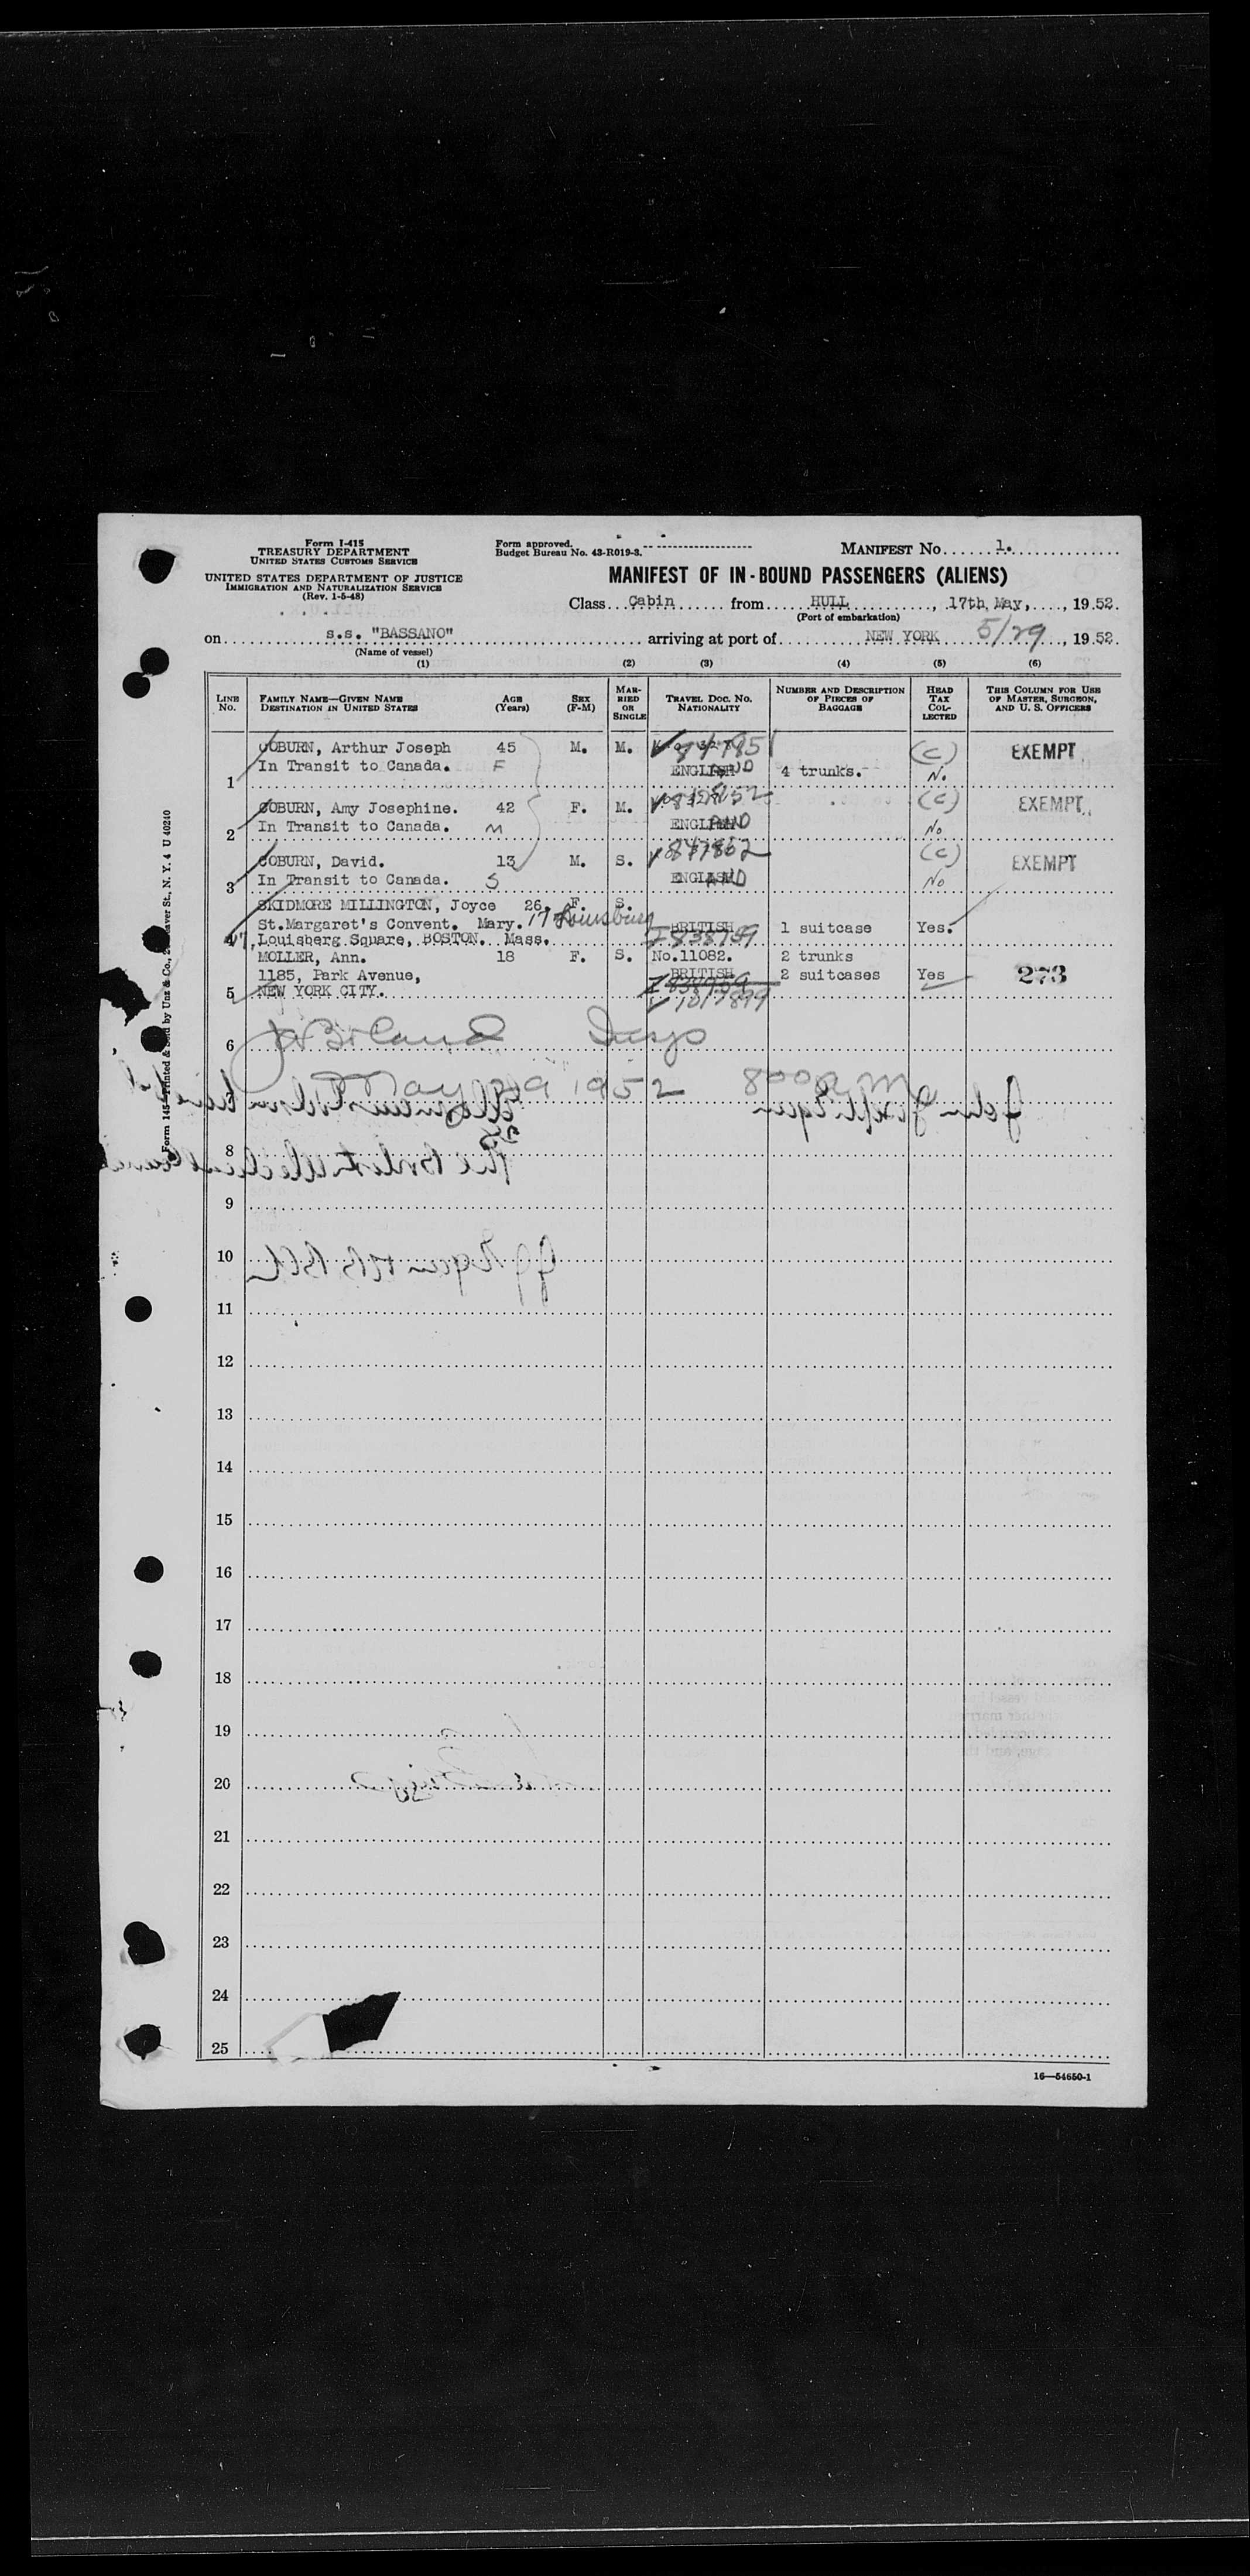 Form I-415
TREASURY DEPARTMENT
UNITED STATES CUSTOMS SERVICE
UNITED STATES DEPARTMENT OF JUSTICE
IMMIGRATION AND NATURALIZATION SERVICE
(Rev. 1-5-48)
Form approved.
Budget Bureau No. 43-R019-3.
MANIFEST NO. 1.
MANIFEST OF IN-BOUND PASSENGERS (ALIENS)
Class Cabin from HULL, 17th May, 1952.
(Port of embarkation)
on s.s. "BASSANO" arriving at port of NEW YORK 5/29, 1952
(Name of vessel)
(1) (2) (3) (4) (5) (6)
LINE NO. FAMILY NAME—GIVEN NAME DESTINATION IN UNITED STATES AGE (Years) SEX (F-M) MARRIED OR SINGLE TRAVEL DOC. NO. NATIONALITY NUMBER AND DESCRIPTION OF PIECES OF BAGGAGE HEAD TAX COLLECTED THIS COLUMN FOR USE OF MASTER, SURGEON, AND U. S. OFFICERS
COBURN, Arthur Joseph 45 M. M. (C) EXEMPT
In Transit to Canada. F 4 trunks. No.
1
COBURN, Amy Josephine. 42 F. M. (C) EXEMPT
In Transit to Canada. M No
2
COBURN, David. 13 M. S. (C) EXEMPT
In Transit to Canada. S No
3
SKIDMORE MILLINGTON, Joyce 26. F. S.
St.Margaret's Convent. Mary. 17 Louisburg BRITISH 1 suitcase Yes.
4 17, Louisberg Square, BOSTON. Mass. I 838759
MOLLER, Ann. 18 F. S. No.11082. 2 trunks
1185, Park Avenue, BRITISH 2 suitcases Yes 273
5 NEW YORK CITY.
V 1017899
6 Insp
May 29 1952 8 00 a m
8
9
10
11
12
13
14
15
16
17
18
19
20
21
22
23
24
25
16—54650-1